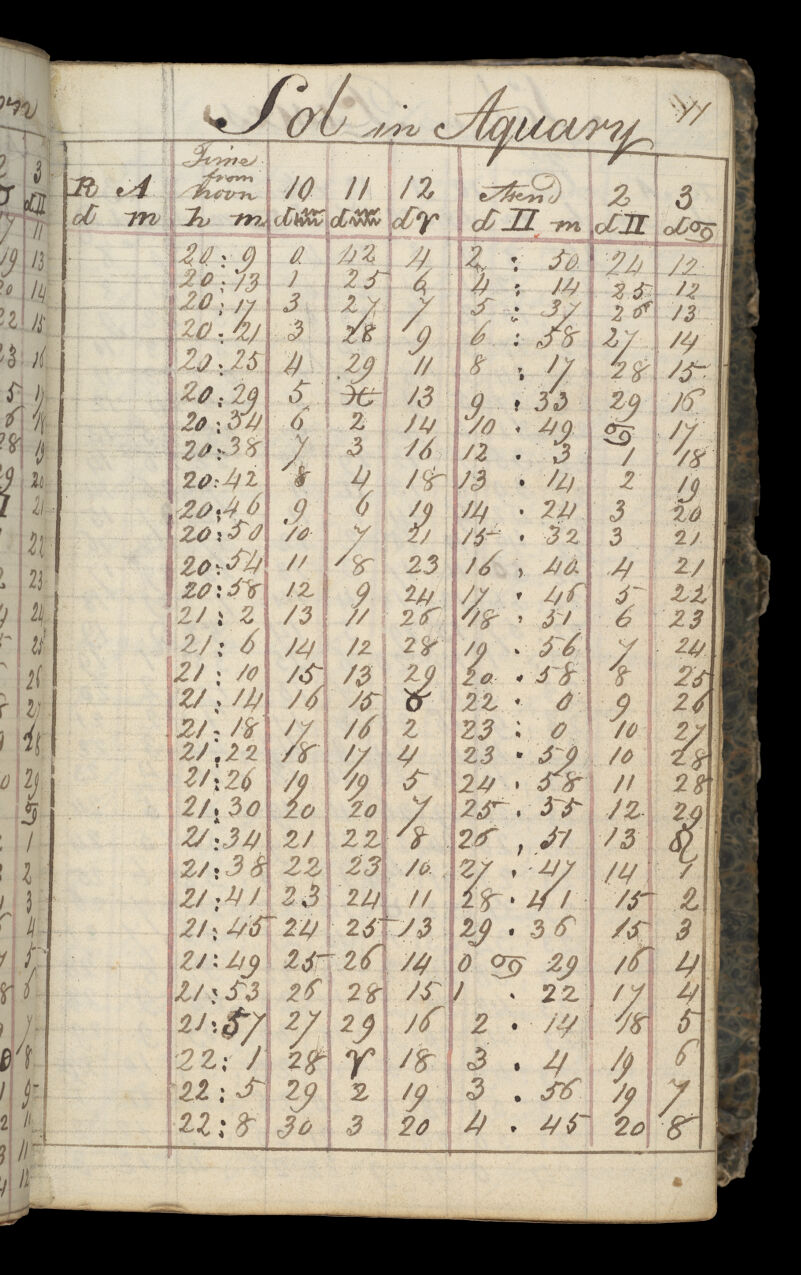 Sol in Aquary 11
R A Time from noon 10 11 12 Asend 2 3
d m h m d♒ d♒ d♈ d II m d II d♋
20:9 0 42 4 2:50 24 12
20:13 1 25 6 4:14 25 12
20:17 3 27 7 5:37 26 13
20:21 3 28 9 6:58 27 14
20:25 4 29 11 8:17 28 15
20:29 5 ♓ 13 9.33 29 16
20:34 6 2 14 10.49 ♋ 17
20:38 7 3 16 12.3 1 18
20:42 8 4 18 13.14 2 19
20:46 9 6 19 14.24 3 20
20:50 10 7 21 15.32 3 21
20:54 11 8 23 16.40 4 21
20:58 12 9 24 17.46 5 22
21:2 13 11 26 18.51 6 23
21:6 14 12 28 19.56 7 24
21:10 15 13 29 20.58 8 25
21:14 16 15 ♉ 22.0 9 26
21.18 17 16 2 23:0 10 27
21.22 18 17 4 23.59 10 28
21:26 19 19 5 24.58 11 28
21.30 20 20 7 25.55 12 29
21:34 21 22 8 26,51 13 ♌
21:38 22 23 10 27.47 14 1
21:41 23 24 11 28.41 15 2
21:45 24 25 13 29.36 15 3
21:49 25 26 14 0 ♋ 29 16 4
21:53 26 28 15 1.22 17 4
21:57 27 29 16 2.14 18 5
22:1 28 ♈ 18 3.4 19 6
22:5 29 2 19 3.56 19 7
22:8 30 3 20 4.45 20 8